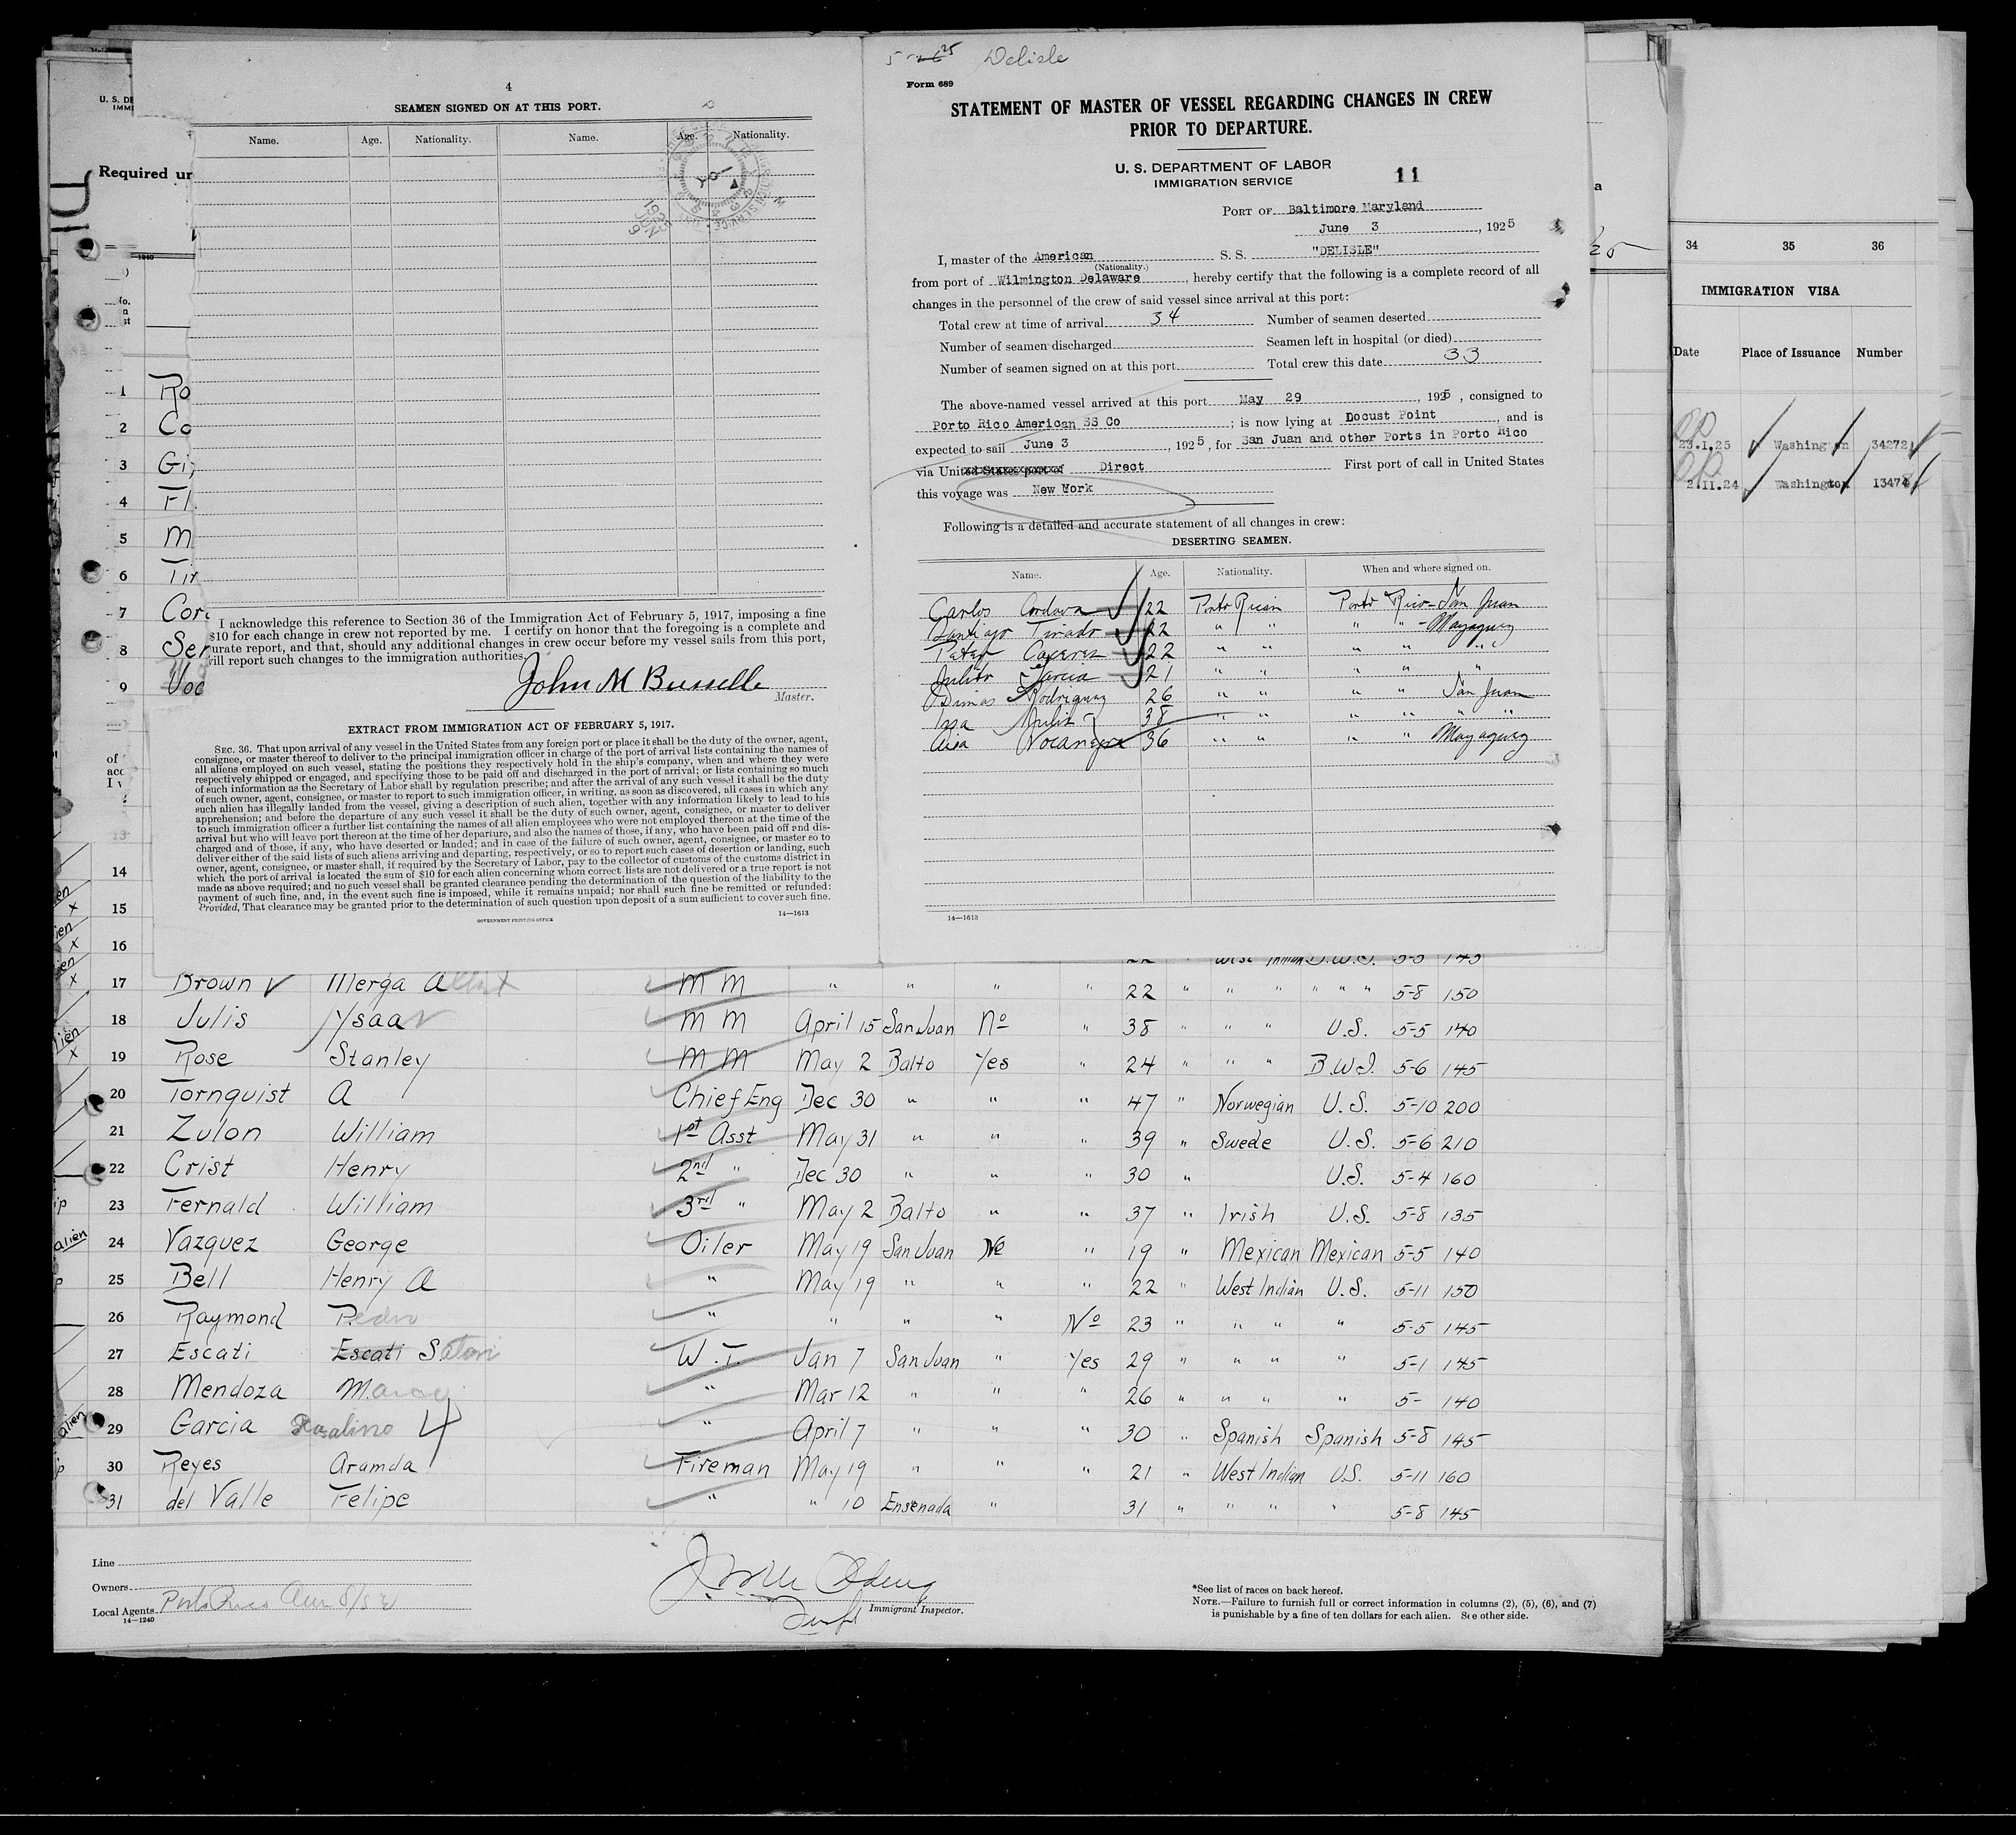 4
SEAMEN SIGNED ON AT THIS PORT.
Name. Age. Nationality. Name. Age. Nationality.
I acknowledge this reference to Section 36 of the Immigration Act of February 5, 1917, imposing a fine
$10 for each change in crew not reported by me. I certify on honor that the foregoing is a complete and
urate report, and that, should any additional changes in crew occur before my vessel sails from this port,
ill report such changes to the immigration authorities.
John M Busselle
Master.
EXTRACT FROM IMMIGRATION ACT OF FEBRUARY 5, 1917.
SEC. 36. That upon arrival of any vessel in the United States from any foreign port or place it shall be the duty of the owner, agent,
consignee, or master thereof to deliver to the principal immigration officer in charge of the port of arrival lists containing the names of
all aliens employed on such vessel, stating the positions they respectively hold in the ship's company, when and where they were
respectively shipped or engaged, and specifying those to be paid off and discharged in the port of arrival; or lists containing so much
of such information as the Secretary of Labor shall by regulation prescribe; and after the arrival of any such vessel it shall be the duty
of such owner, agent, consignee, or master to report to such immigration officer, in writing, as soon as discovered, all cases in which any
such alien has illegally landed from the vessel, giving a description of such alien, together with any information likely to lead to his
apprehension; and before the departure of any such vessel it shall be the duty of such owner, agent, consignee, or master to deliver
to such immigration officer a further list containing the names of all alien employees who were not employed thereon at the time of the
arrival but who will leave port thereon at the time of her departure, and also the names of those, if any, who have been paid off and dis-
charged and of those, if any, who have deserted or landed; and in case of the failure of such owner, agent, consignee, or master so to
deliver either of the said lists of such aliens arriving and departing, respectively, or so to report such cases of desertion or landing, such
owner, agent, consignee, or master shall, if required by the Secretary of Labor, pay to the collector of customs of the customs district in
which the port of arrival is located the sum of $10 for each alien concerning whom correct lists are not delivered or a true report is not
made as above required; and no such vessel shall be granted clearance pending the determination of the question of the liability to the
payment of such fine, and, in the event such fine is imposed, while it remains unpaid; nor shall such fine be remitted or refunded:
Provided, That clearance may be granted prior to the determination of such question upon deposit of a sum sufficient to cover such fine.
GOVERNMENT PRINTING OFFICE 14—1613
Delisle
Form 689
STATEMENT OF MASTER OF VESSEL REGARDING CHANGES IN CREW
PRIOR TO DEPARTURE.
U. S. DEPARTMENT OF LABOR
IMMIGRATION SERVICE
11
PORT OF Baltimore Maryland
June 3, 1925
I, master of the American S. S. "DELISLE"
(Nationality.)
from port of Wilmington Delaware, hereby certify that the following is a complete record of all
changes in the personnel of the crew of said vessel since arrival at this port:
Total crew at time of arrival 34 Number of seamen deserted
Number of seamen discharged Seamen left in hospital (or died)
Number of seamen signed on at this port Total crew this date 33
The above-named vessel arrived at this port May 29, 1925, consigned to
Porto Rico American SS Co; is now lying at Docust Point, and is
expected to sail June 3, 1925, for San Juan and other Ports in Porto Rico
via United States port of Direct First port of call in United States
this voyage was New York
Following is a detailed and accurate statement of all changes in crew:
DESERTING SEAMEN.
Name. Age. Nationality. When and where signed on.
Carlos Cordova 22 Porto Rican Porto Rico - San Juan
Santiago Tirado 22 " " " " - Mayaguez
Caceres 22 " " " " "
Julito Garcia 21 " " " " "
Dimas Rodriguez 26 " " " " San Juan
Issa Julis 38 " " " " " "
36 " " " " Mayaguez
14—1613
U. S. DE
IMMI
Required ur
1 Ro
2 Co
3 Gi
4 Fl
5 M
6 Tir
7 Cor
8 Ser
9 Voc
14
15
16
17 Brown Merga M M " " " " 22 " " " " " " 5-8 150
18 Julis Ysaa M M April 15 San Juan No " 38 " " " U.S. 5-5 140
19 Rose Stanley M M May 2 Balto Yes " 24 " " " B.W.I. 5-6 145
20 Tornquist A Chief Eng Dec 30 " " " 47 " Norwegian U.S. 5-10 200
21 Zulon William 1st Asst May 31 " " " 39 " Swede U.S. 5-6 210
22 Crist Henry 2nd " Dec 30 " " " 30 " U.S. 5-4 160
23 Fernald William 3rd " May 2 Balto " " 37 " Irish U.S. 5-8 135
24 Vazquez George Oiler May 19 San Juan No " 19 " Mexican Mexican 5-5 140
25 Bell Henry A " May 19 " " " 22 " West Indian U.S. 5-11 150
26 Raymond Pedro " " " " No 23 " " " " 5-5 145
27 Escati Escati W.T. Jan 7 San Juan " Yes 29 " " " " 5-1 145
28 Mendoza " Mar 12 " " " 26 " " " " 5- 140
29 Garcia Rosalino " April 7 " " " 30 " Spanish Spanish 5-8 145
30 Reyes Aramda Fireman May 19 " " " 21 " West Indian U.S. 5-11 160
31 del Valle Felipe " " 10 Ensenada " 31 " " " " 5-8 145
Line
Owners
Local Agents Porto Rico Am S/S
14—1240
Immigrant Inspector.
*See list of races on back hereof.
NOTE.—Failure to furnish full or correct information in columns (2), (5), (6), and (7)
is punishable by a fine of ten dollars for each alien. See other side.
34 35 36
IMMIGRATION VISA
Date Place of Issuance Number
23.1.25 Washington 34272
2.11.24 Washington 13474